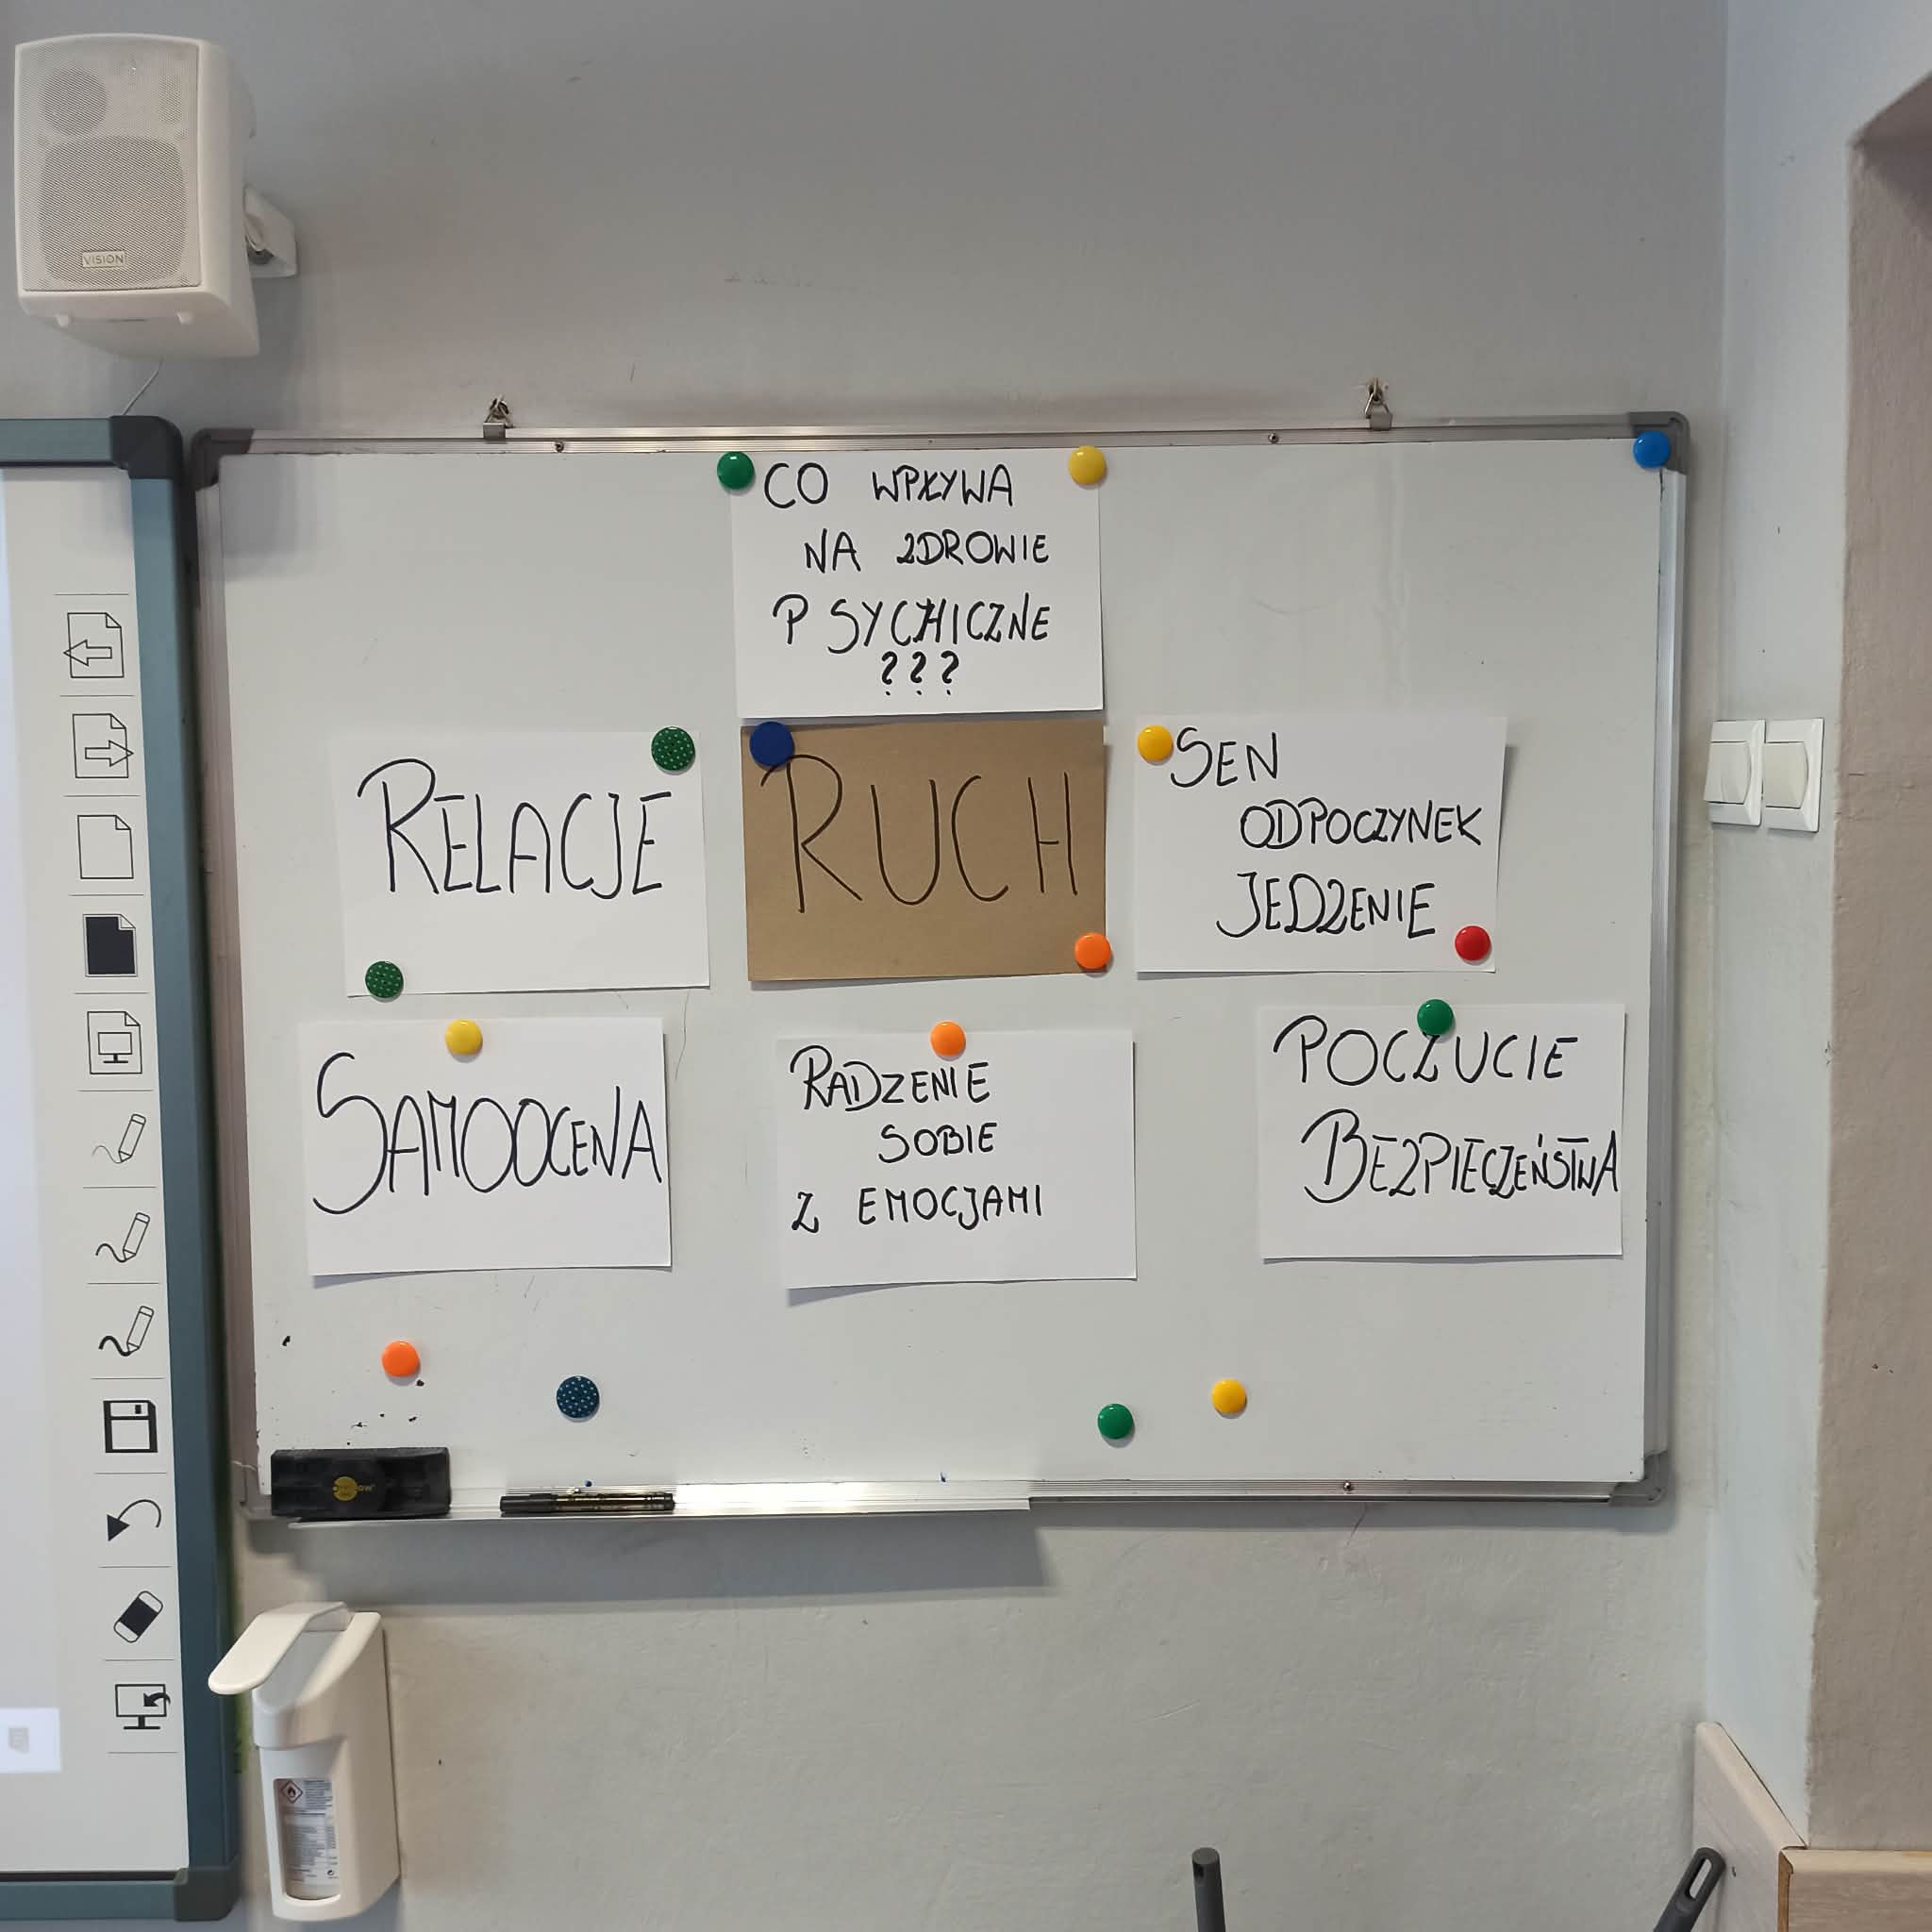 VISION
CO WPŁYWA
NA ZDROWIE
PSYCHICZNE
???
RELACJE
RUCH
SEN
ODPOCZYNEK
JEDZENIE
SAMOOCENA
RADZENIE
SOBIE
Z EMOCJAMI
POCZUCIE
BEZPIECZEŃSTWA